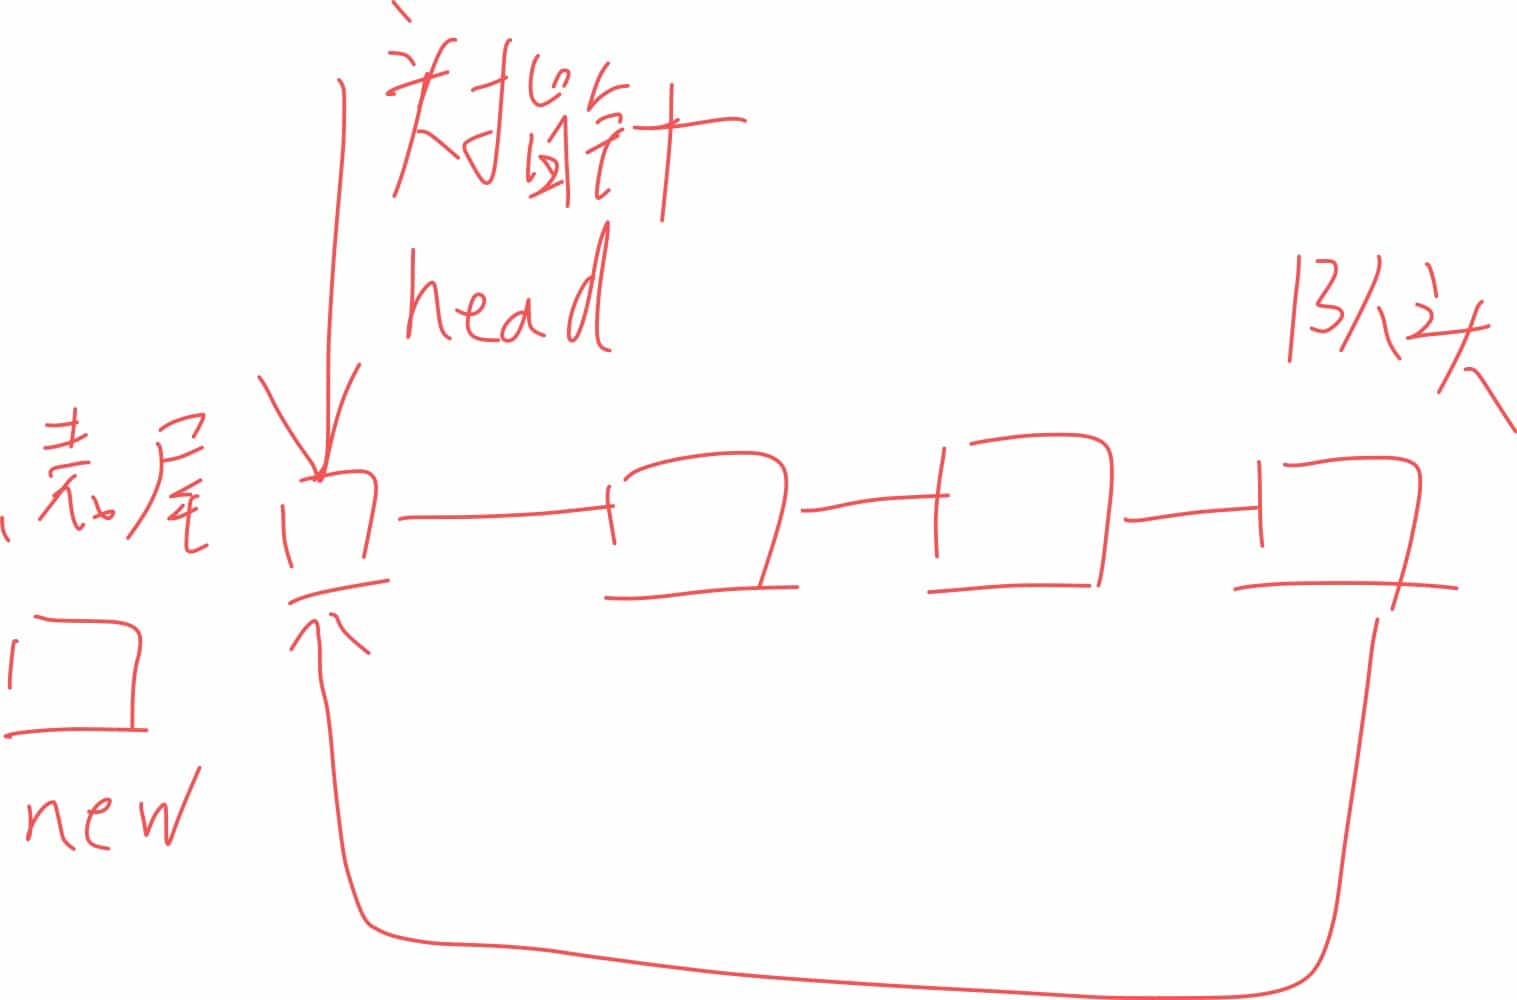 头指针
head
队头
表尾
new